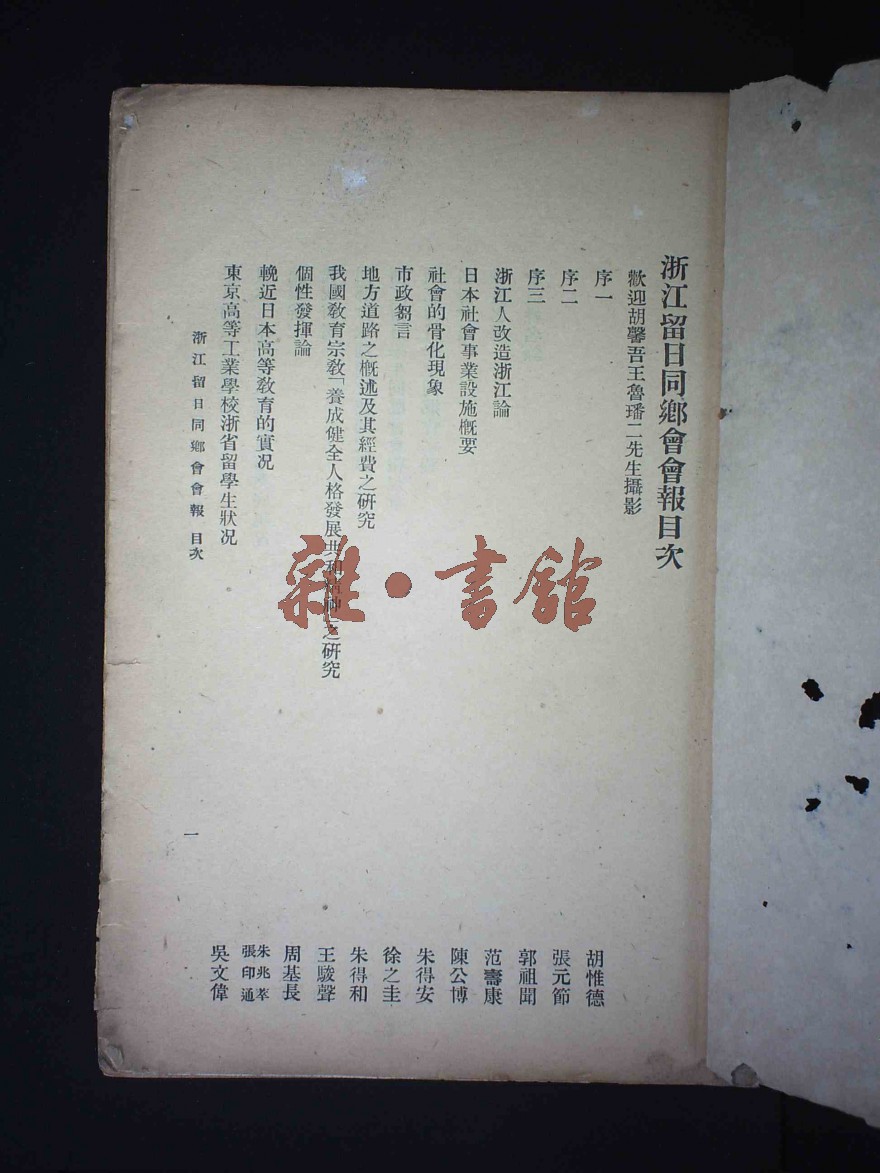 浙江留日同鄉會會報目次
歡迎胡馨吾王魯璠二先生攝影
序一 胡惟德
序二 張元節
序三 郭祖聞
浙江人改造浙江論 范壽康
日本社會事業設施概要 陳公博
社會的骨化現象 朱得安
市政芻言 徐之圭
地方道路之概述及其經費之研究 朱得和
我國教育宗教「養成健全人格發展共和精神」之研究 王駿聲
個性發揮論 周基長
輓近日本高等教育的實況 朱兆萃 張印通
東京高等工業學校浙省留學生狀況 吳文偉
浙江留日同鄉會會報 目次
一
雜·書館